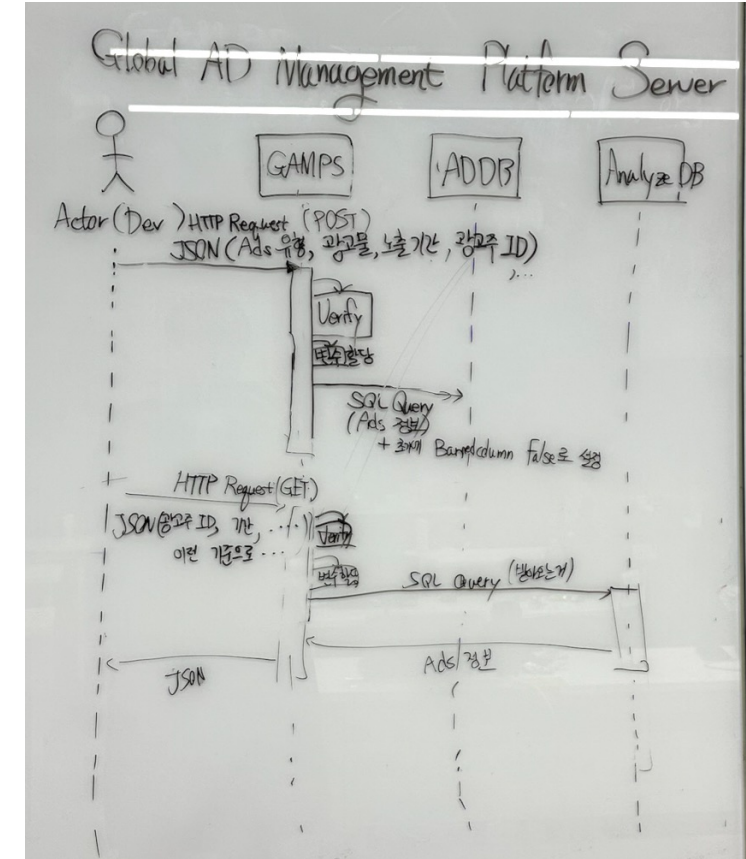 Global AD Management Platform Server
GAMPS
ADDB
Analyze DB
Actor (Dev) HTTP Request (POST)
JSON (Ads 유형, 광고물, 노출기간, 광고주 ID)
,...
Verify
변수할당
SQL Query
(Ads 정보)
+ Banned column False로 설정
HTTP Request (GET)
JSON (광고주 ID, 기간, ...)
이런 기준으로...
Verify
변수할당
SQL Query (받아오는거)
Ads 정보
JSON